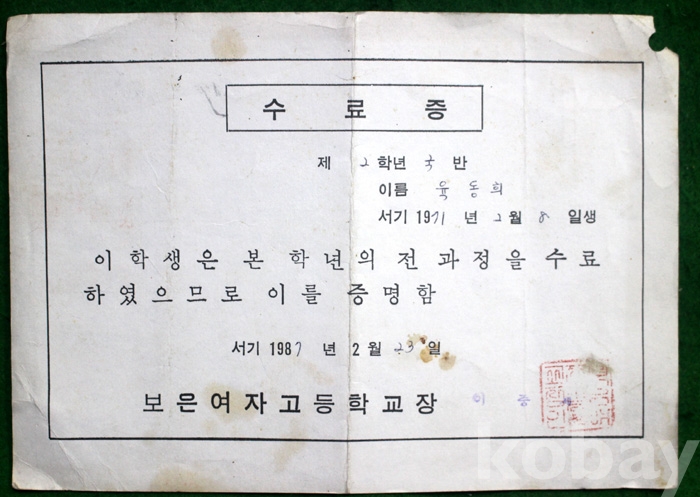 수료증
제 2 학년 국 반
이름 육동희
서기 1971 년 2 월 8 일생
이 학생은 본 학년의 전 과정을 수료
하였으므로 이를 증명함
서기 1987 년 2 월 23 일
보은여자고등학교장 이
kobay